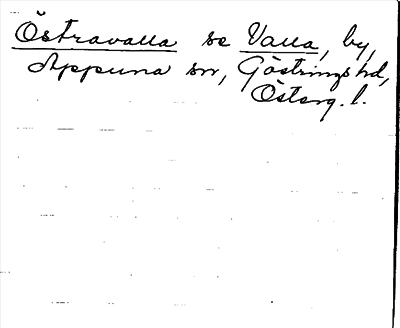 Östravalla se Valla, by,
Appuna sn, Göstrings hd,
Österg. l.